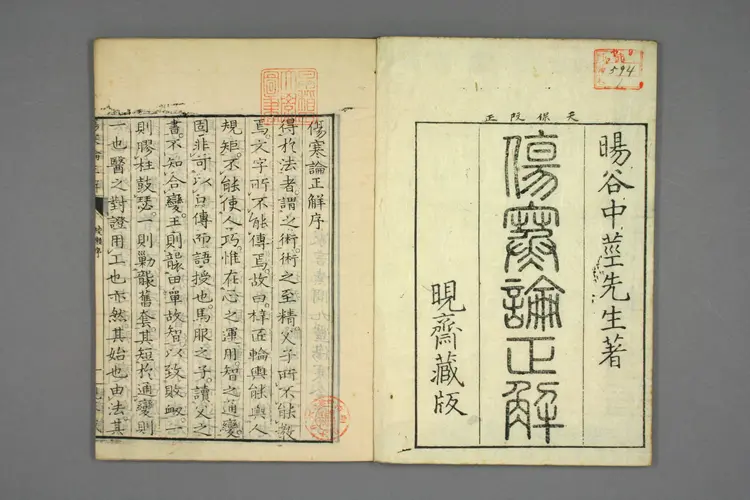 594
天保改正
暘谷中莖先生著
傷寒論正解
晛齋藏版
傷寒論正解序
得於法者謂之術術之至精父子所不能教
焉文字所不能傳焉故曰梓匠輪輿能與人
規矩不能使人巧惟在心之運用智之通變
固非可以口傳而語授也馬服之子讀父之
書不知合變王則襲田單故智以致敗衂一
則膠柱鼓瑟一則勦襲舊套其短於通變則
一也醫之對證用工也亦然其始也由法其